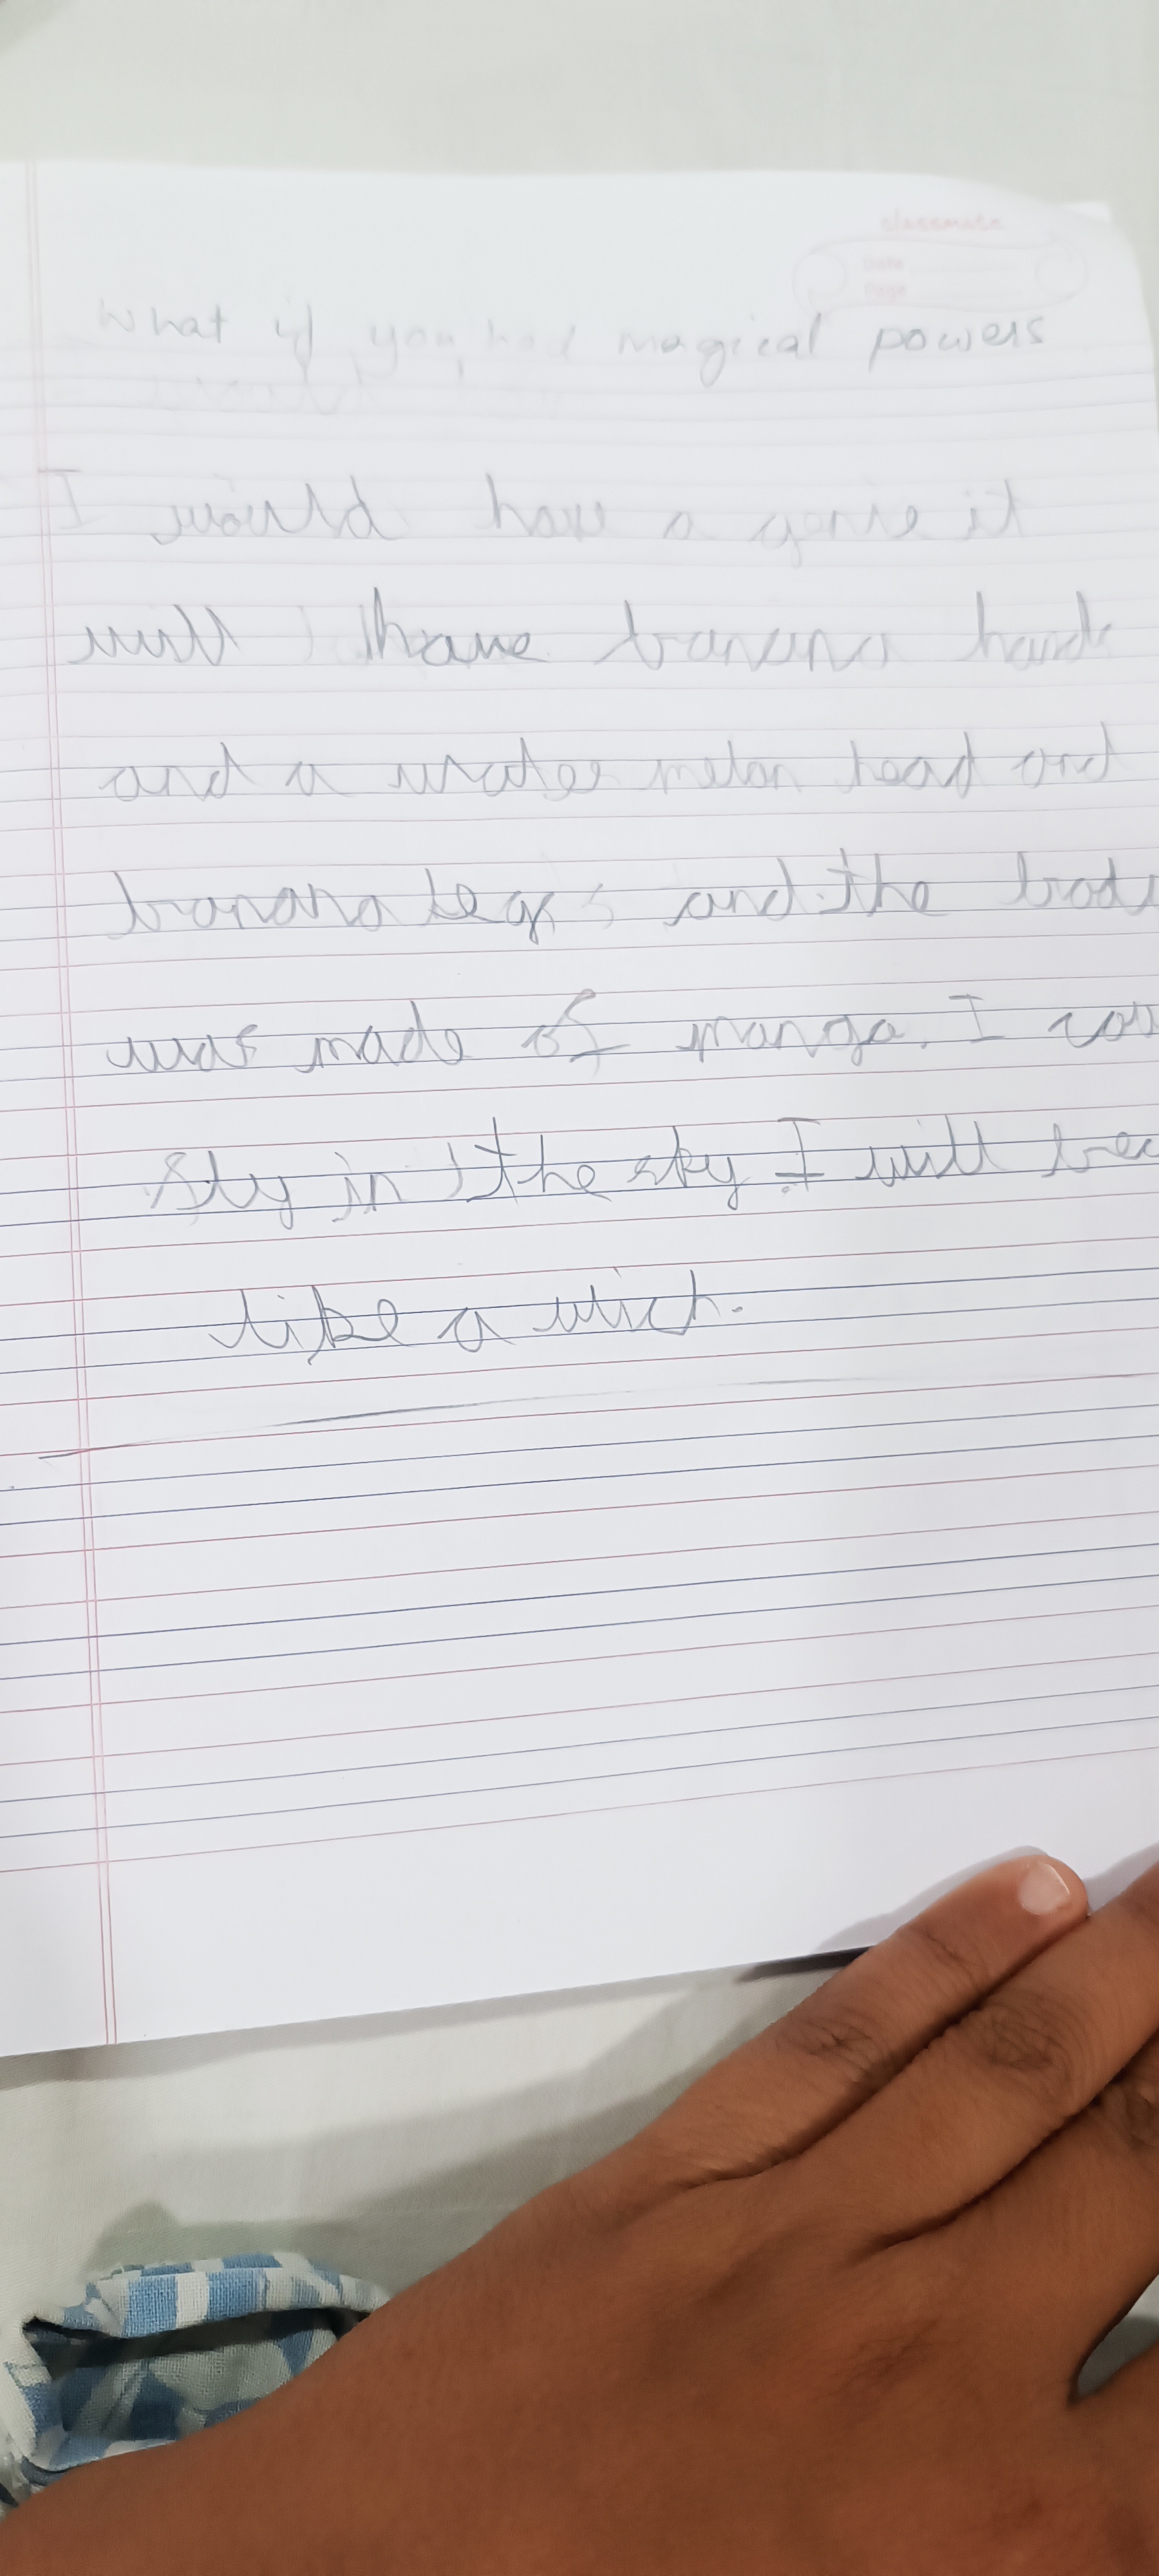 classmate
Date
Page
What if you had magical powers
I would have a genie it
will have banana hands
and a water melon head and
banana legs and the bod
was made of mango. I co
fly in the sky I will be
like a wich.